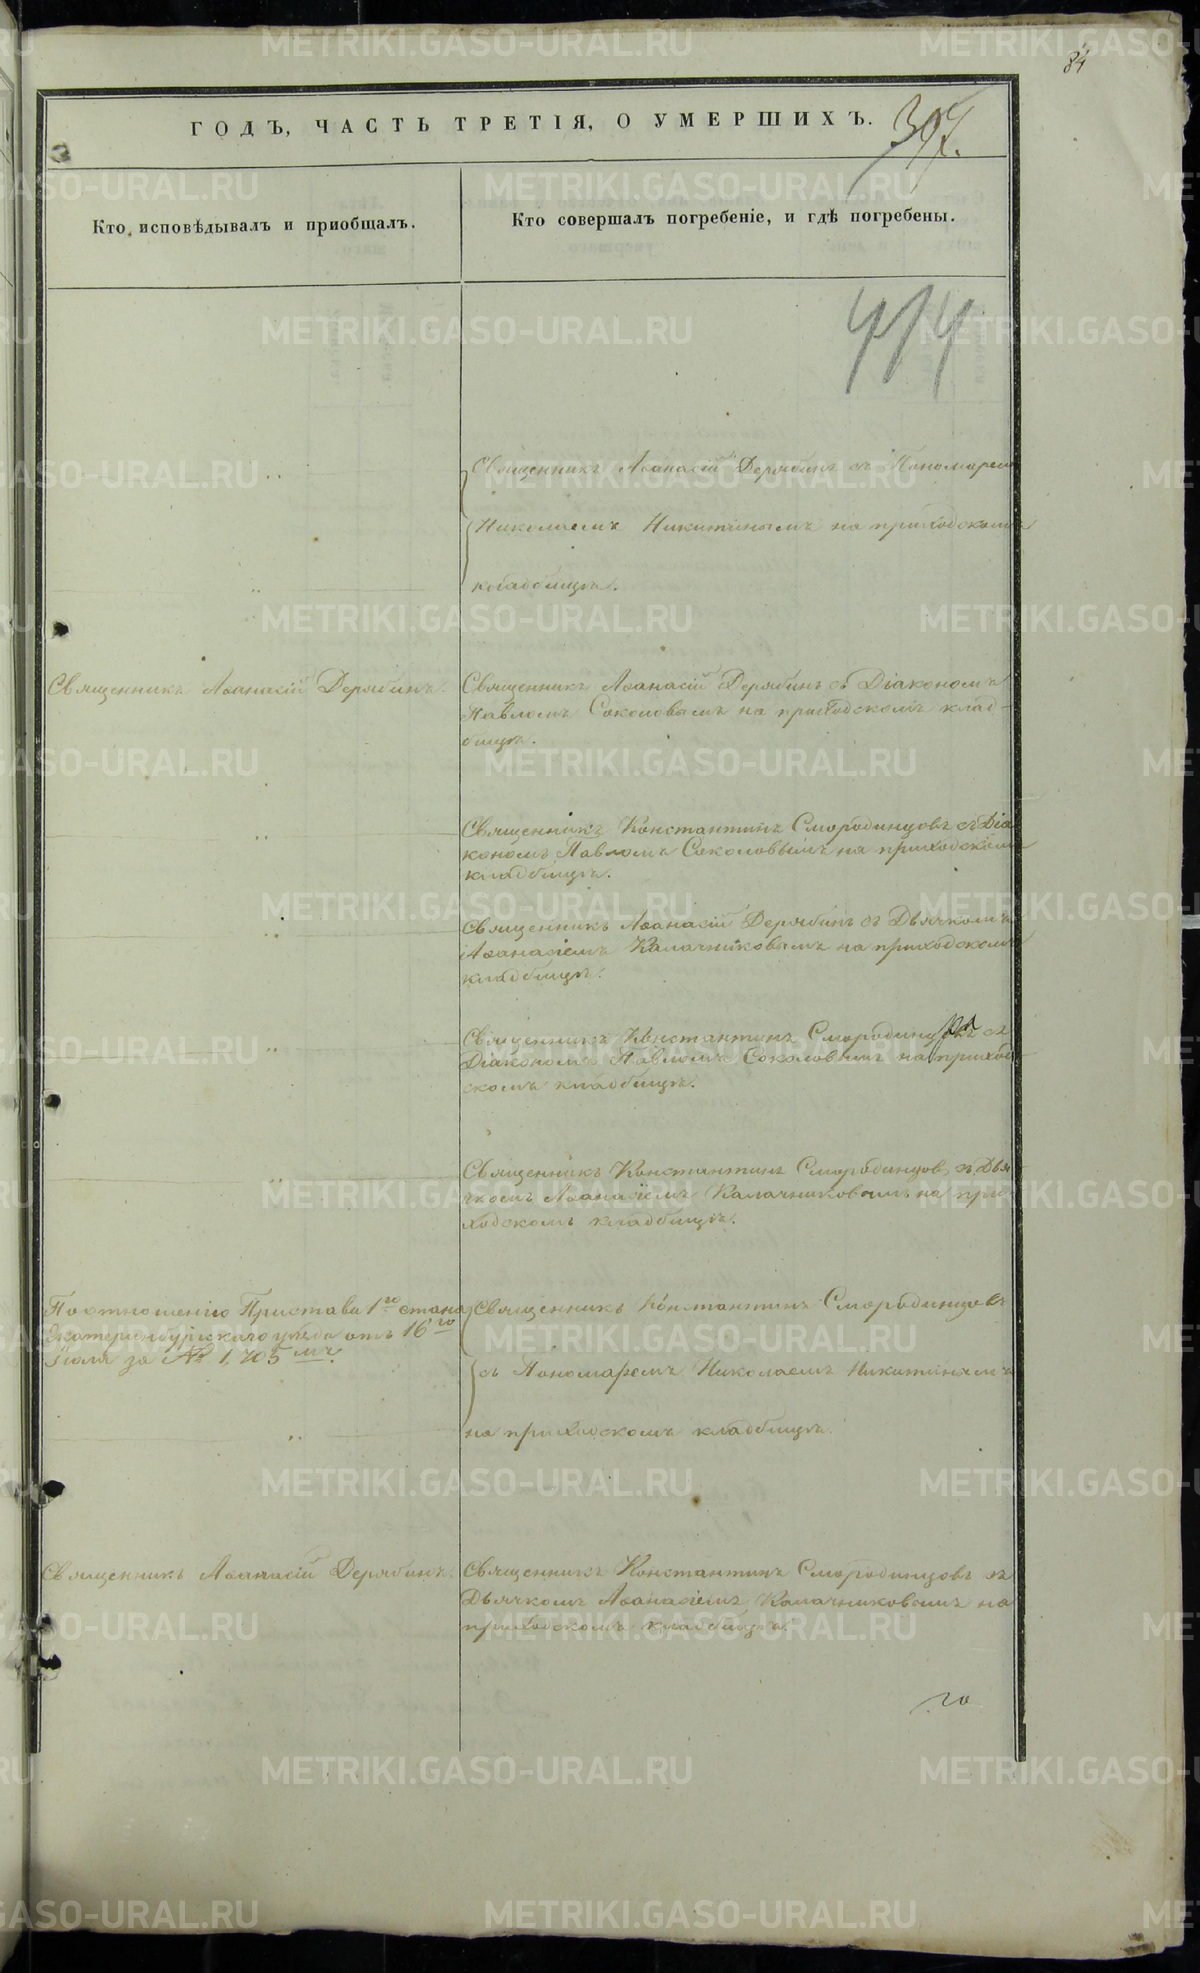 84
ГОДЪ, ЧАСТЬ ТРЕТІЯ, О УМЕРШИХЪ.
397.
Кто исповѣдывалъ и пріобщалъ.
Кто совершалъ погребеніе, и гдѣ погребены.
414
Священникъ Аѳанасій Дерябинъ съ Пономаремъ
Николаемъ Никитинымъ на приходскомъ
кладбищѣ.
Священникъ Аѳанасій Дерябинъ.
Священникъ Аѳанасій Дерябинъ съ Діакономъ
Павломъ Соколовымъ на приходскомъ клад-
бищѣ.
Священникъ Константинъ Смородинцовъ съ Діа
кономъ Павломъ Соколовымъ на приходскомъ
кладбищѣ.
Священникъ Аѳанасій Дерябинъ съ Дьячкомъ
Аѳанасіемъ Калачниковымъ на приходскомъ
кладбищѣ.
Священникъ Константинъ Смородинцовъ съ
Діакономъ Павломъ Соколовымъ на приход
скомъ кладбищѣ.
Священникъ Константинъ Смородинцовъ съ Дья
чкомъ Аѳанасіемъ Калачниковымъ на при
ходскомъ кладбищѣ.
По отношенію Пристава 1го стана
Екатеринбургскаго уѣзда отъ 16го
Іюля за № 1,705мъ.
Священникъ Константинъ Смородинцовъ
съ Пономаремъ Николаемъ Никитинымъ
на приходскомъ кладбищѣ.
Священникъ Аѳанасій Дерябинъ.
Священникъ Константинъ Смородинцовъ съ
Дьячкомъ Аѳанасіемъ Калачниковымъ на
приходскомъ кладбищѣ.
METRIKI.GASO-URAL.RU